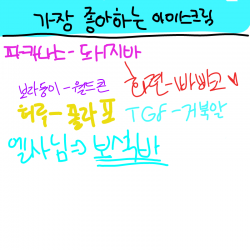 가장 좋아하는 아이스크림
파카나스- 도시지바
보라동이-월드콘
하면-빠삐코♥
허루-폴라포
TGF-거북알
엘사님=>보석바